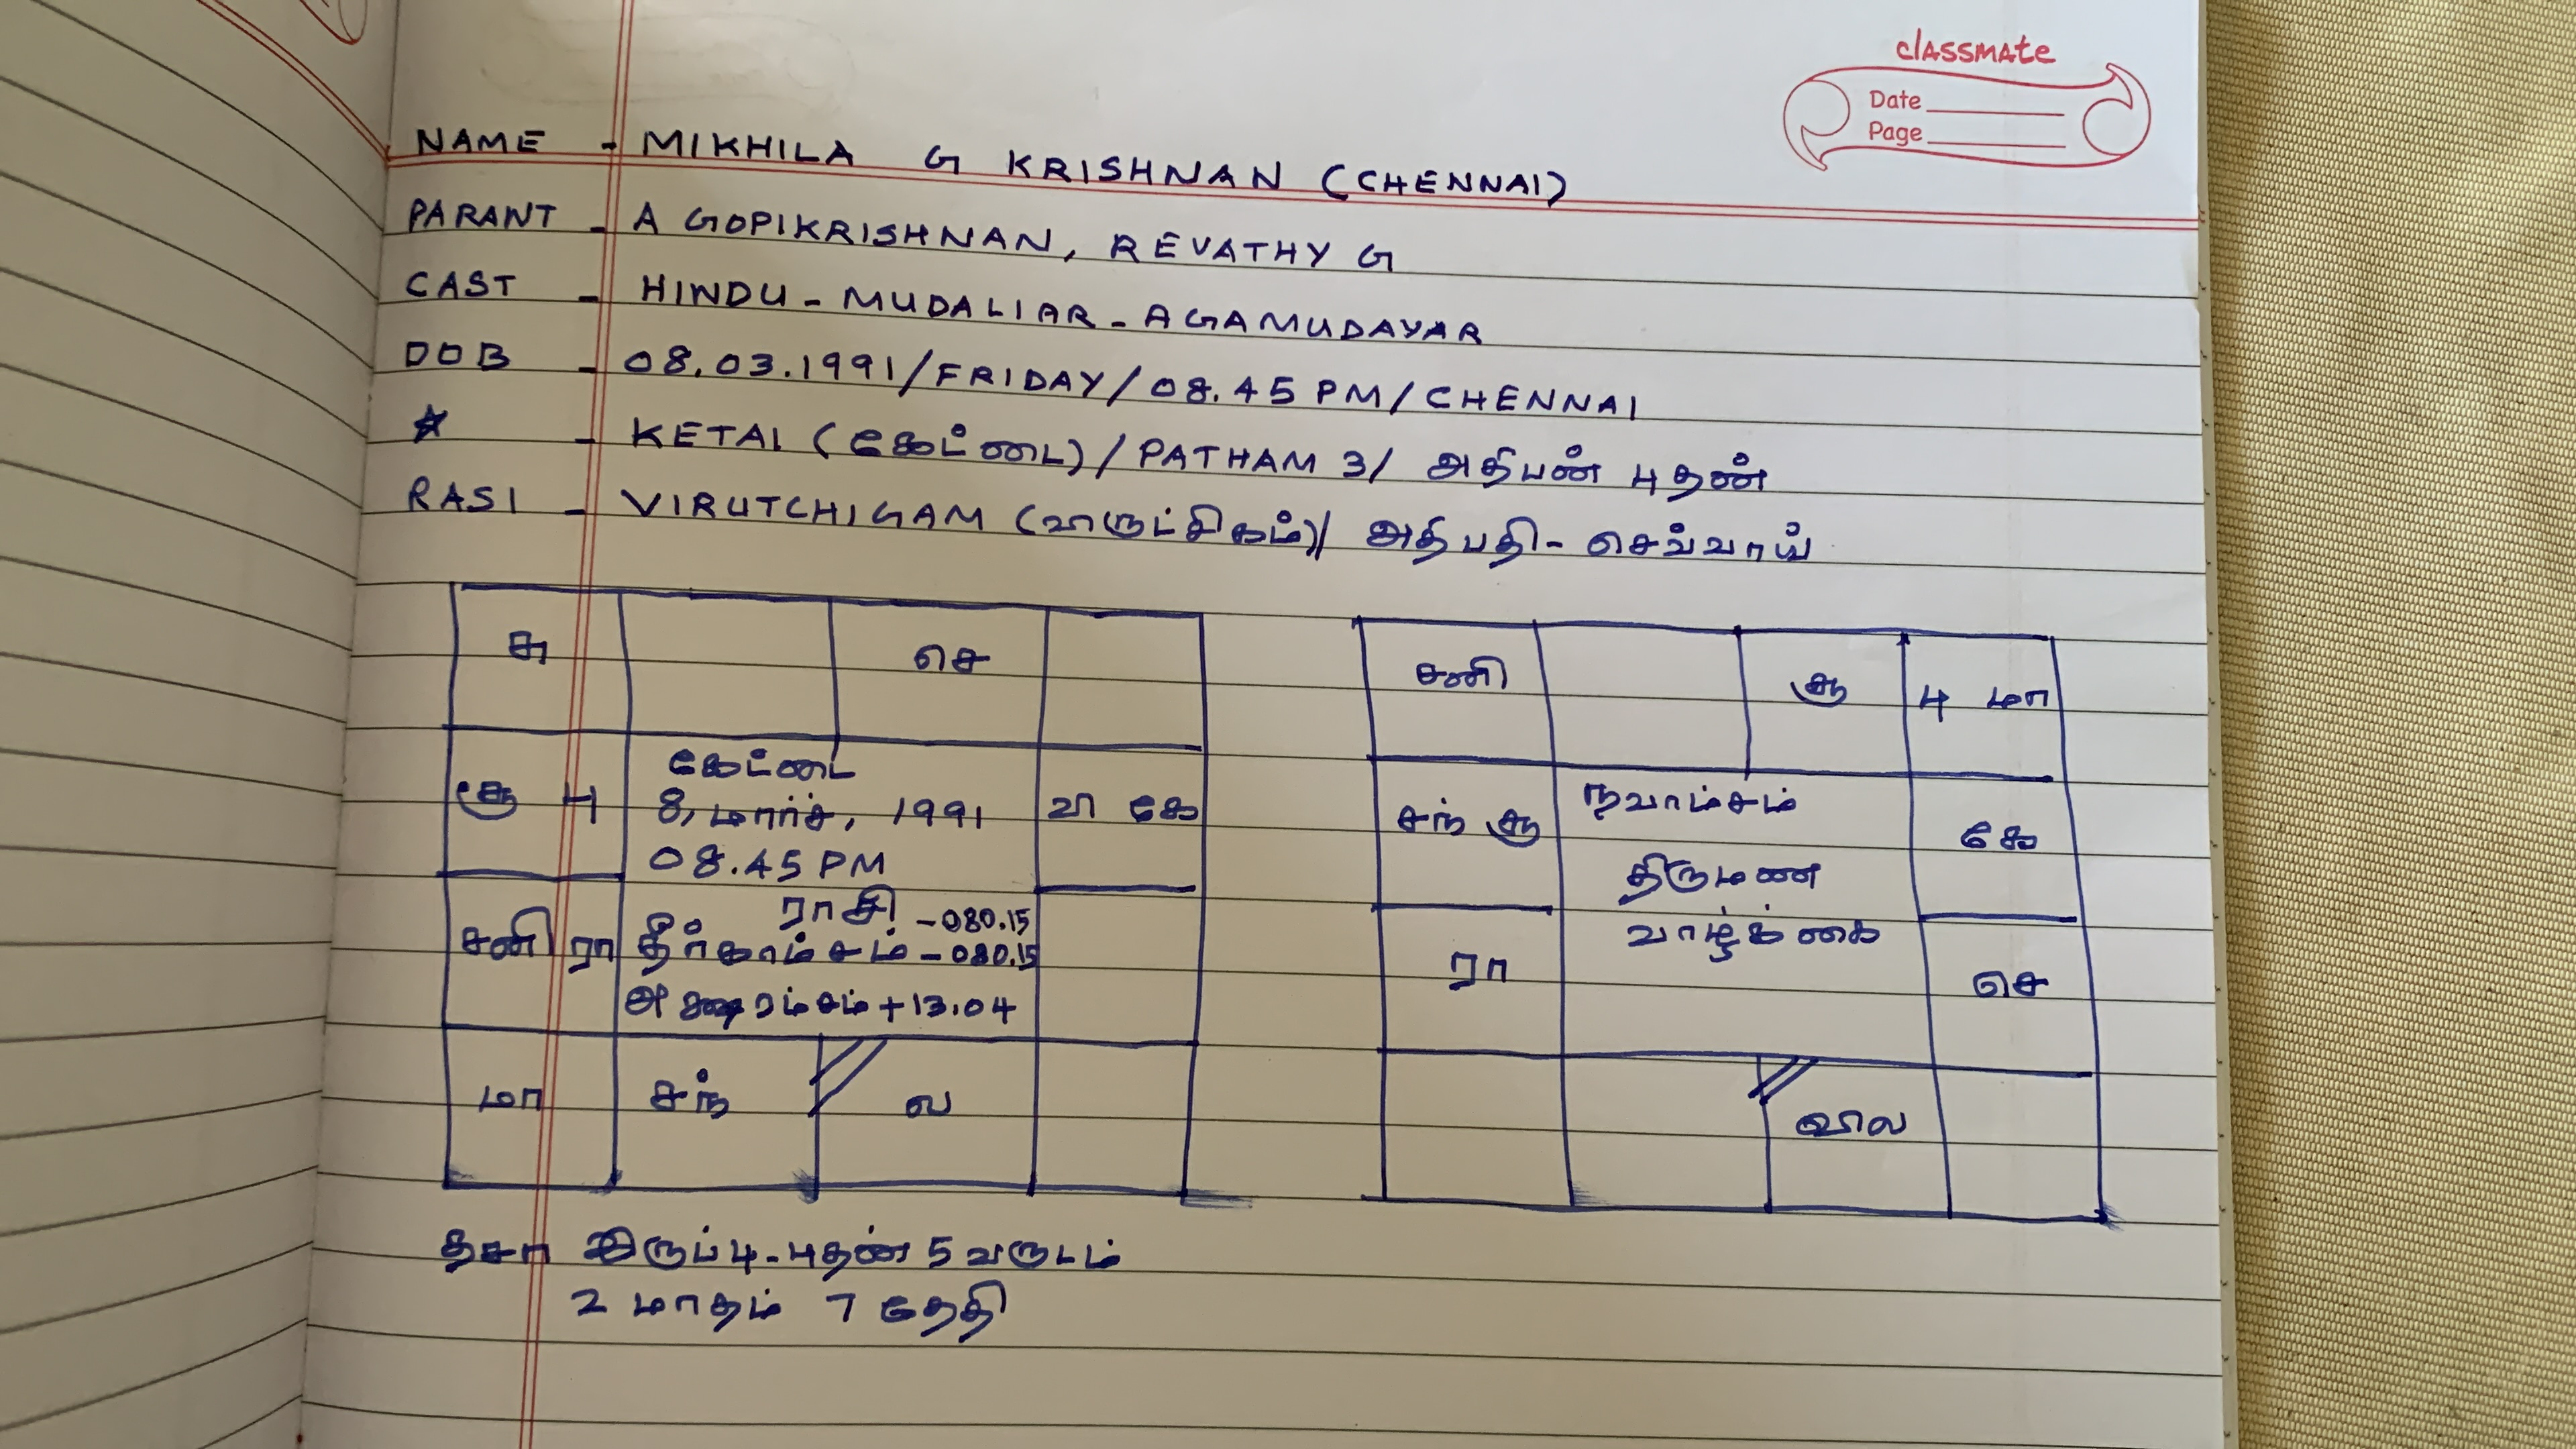 classmate
Date
Page
NAME - MIKHILA G KRISHNAN (CHENNAI)
PARANT - A GOPIKRISHNAN, REVATHY G
CAST - HINDU - MUDALIAR - AGAMUDAYAR
DOB - 08.03.1991/FRIDAY/08.45 PM/CHENNAI
☆ - KETAI (கேட்டை)/PATHAM 3/ அதிபண் புதண்
RASI - VIRUTCHIGAM (விருட்சிகம்)/ அதிபதி - செவ்வாய்
சு செ
கு பு வி கே
சனி ரா
மா சந் ல
கேட்டை
8, மார்ச், 1991
08.45 PM
ராசி -080.15
தீர்காம்சம் -080.15
+13.04
சனி சூ பு மா
சந் கு கே
ரா செ
வி ல
நவாம்சம்
திருமண
வாழ்க்கை
தசா இருப்பு - புதண் 5 வருடம்
2 மாதம் 7 தேதி